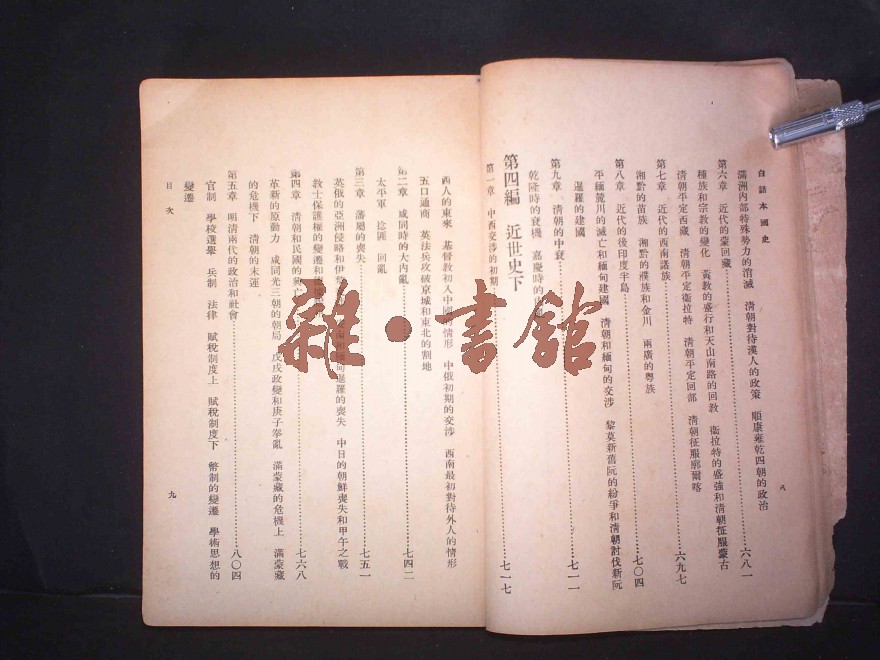 白話本國史
八
滿洲內部特殊勢力的消滅 清朝對待漢人的政策 順康雍乾四朝的政治
第六章 近代的蒙回藏 六八一
種族和宗教的變化 黃教的盛行和天山南路的回教 衞拉特的盛強和清朝征服蒙古
清朝平定西藏 清朝平定衞拉特 清朝平定回部 清朝征服廓爾喀
第七章 近代的西南諸族 六九七
湘黔的苗族 湘黔的濮族和金川 兩廣的粵族
第八章 近代的後印度半島 七〇四
平緬麓川的滅亡和緬甸建國 清朝和緬甸的交涉 黎莫新舊阮的紛爭和清朝討伐新阮
暹羅的建國
第九章 清朝的中衰 七一一
乾隆時的衰機 嘉慶時的
第四編 近世史下
第一章 中西交涉的初期 七一七
西人的東來 基督教初入中國的情形 中俄初期的交涉 西南最初對待外人的情形
五口通商 英法兵攻破京城和東北的割地
第二章 咸同時的大內亂 七四二
太平軍 捻匪 回亂
第三章 藩屬的喪失 七五一
英俄的亞洲侵略和伊犂 緬甸暹羅的喪失 中日的朝鮮喪失和甲午之戰
教士保護權的變遷和
第四章 清朝和民國的興亡 七六八
革新的原動力 咸同光三朝的朝局 戊戌政變和庚子拳亂 滿蒙藏的危機上 滿蒙藏
的危機下 清朝的末運
第五章 明清兩代的政治和社會 八〇四
官制 學校選舉 兵制 法律 賦稅制度上 賦稅制度下 幣制的變遷 學術思想的
變遷
目次
九
雜·書館